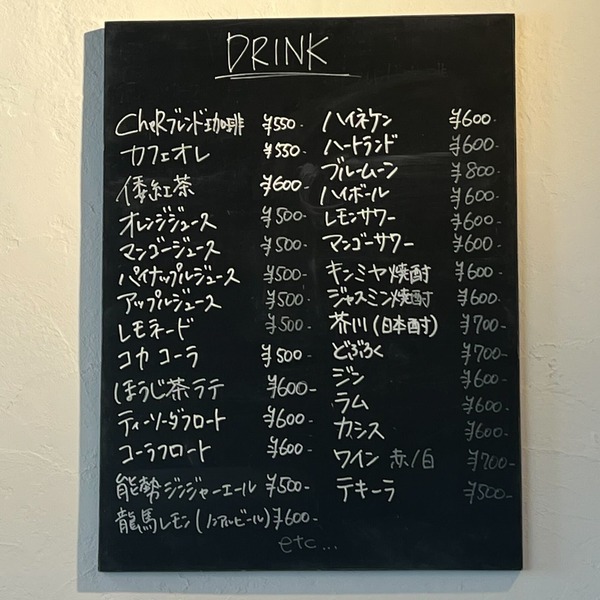 DRINK
CheRブレンド珈琲 ¥550-
カフェオレ ¥550-
倭紅茶 ¥600-
オレンジジュース ¥500-
マンゴージュース ¥500-
パイナップルジュース ¥500-
アップルジュース ¥500-
レモネード ¥500-
コカコーラ ¥500-
ほうじ茶ラテ ¥600-
ティーソーダフロート ¥600-
コーラフロート ¥600-
能勢ジンジャーエール ¥500-
龍馬レモン(ノンアルビール) ¥600-
ハイネケン ¥600-
ハートランド ¥600-
ブルームーン ¥800-
ハイボール ¥600-
レモンサワー ¥600-
マンゴーサワー ¥600-
キンミヤ焼酎 ¥600-
ジャスミン焼酎 ¥600-
芥川(日本酎) ¥700-
どぶろく ¥700-
ジン ¥600-
ラム ¥600-
カシス ¥600-
ワイン 赤/白 ¥700-
テキーラ ¥500-
etc...